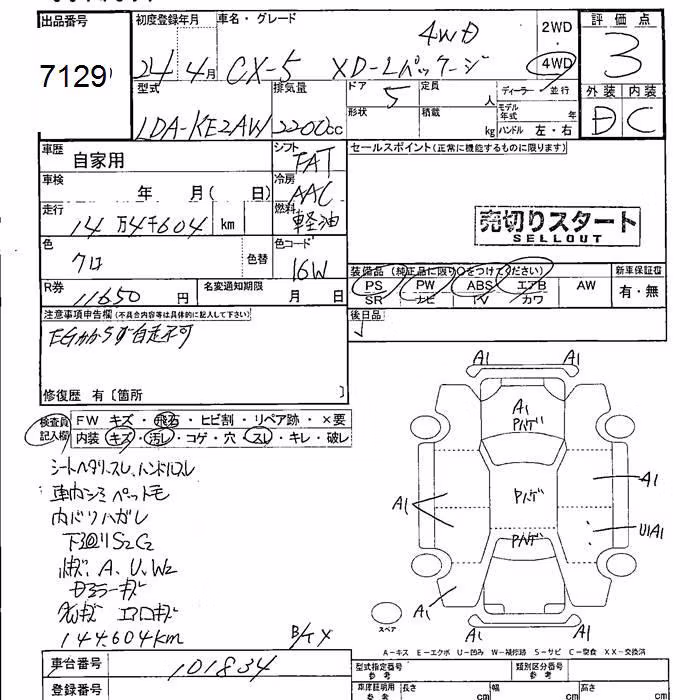 出品番号
7129
初度登録年月
24年4月
車名・グレード
4WD
CX-5 XD-Lパッケージ
2WD
4WD
評価点
3
型式
LDA-KE2AW
排気量
2200cc
ドア
5
定員
人
ディーラー・並行
形状
積載
kg
モデル年式
年
ハンドル 左・右
外装 内装
D C
車歴
自家用
シフト
FAT
セールスポイント(正常に機能するものに限ります)
車検
年 月( 日)
冷房
AAC
走行
14万4千604 km
燃料
軽油
売切りスタート
SELLOUT
色
クロ
色替
色コード
16W
装備品(純正品に限り○をつけてください)
新車保証書
PS PW ABS エアB AW
SR ナビ TV カワ
有・無
R券
11650 円
名変通知期限
月 日
注意事項申告欄(不具合内容等は具体的に記入して下さい)
EGかからず自走不可
後日品
修復歴 有〔箇所 〕
検査員記入欄
FW キズ・飛石・ヒビ割・リペア跡・×要
内装 キズ・汚し・コゲ・穴・スレ・キレ・破レ
シートヘタリ、スレ、ハンドルスレ
車内シミ ペット毛
内バリハガレ
下廻りS2C2
A、U、W2
エアロキズ
144.604km
A1 A1
A1
Pハゲ
A1
A1
Pハゲ
U1A1
Pハゲ
A1
スペア
A1
A1
A-キズ E-エクボ U-凹み W-補修跡 S-サビ C-腐食 XX-交換済
車台番号
101834
登録番号
型式指定番号
参考
類別区分番号
参考
車庫証明用
参考
長さ
cm
幅
cm
高さ
cm